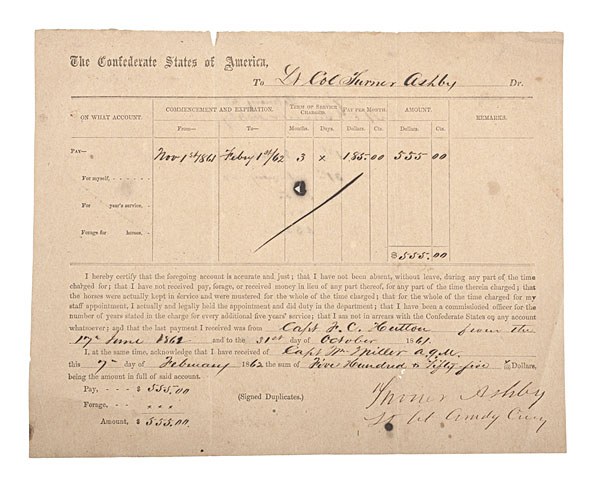 The Confederate States of America,
To Lt Col Turner Ashby Dr.
ON WHAT ACCOUNT. COMMENCEMENT AND EXPIRATION. TERM OF SERVICE CHARGED. PAY PER MONTH. AMOUNT. REMARKS.
From— To— Months. Days. Dollars. Cts. Dollars. Cts.
PAY— Nov 1st 1861 Feby 1st/62 3 x 185.00 555 00
For myself,
For year's service,
Forage for horses,
$555.00
I hereby certify that the foregoing account is accurate and just; that I have not been absent, without leave, during any part of the time
charged for; that I have not received pay, forage, or received money in lieu of any part thereof, for any part of the time therein charged; that
the horses were actually kept in service and were mustered for the whole of the time charged; that for the whole of the time charged for my
staff appointment, I actually and legally held the appointment and did duty in the department; that I have been a commissioned officer for the
number of years stated in the charge for every additional five years' service; that I am not in arrears with the Confederate States on any account
whatsoever; and that the last payment I received was from Capt F. C. Hutton from the
17th June 1862 and to the 31st day of October 1861.
I, at the same time, acknowledge that I have received of Capt Wm Miller a.q.m.
this 7th day of February 1862 the sum of Five Hundred & Fifty five Dollars,
being the amount in full of said account.
Pay, - - - $ 555.00
Forage, - - x x x
Amount, $ 555.00
(Signed Duplicates.)
Turner Ashby
Lt Col Comdg Cavy